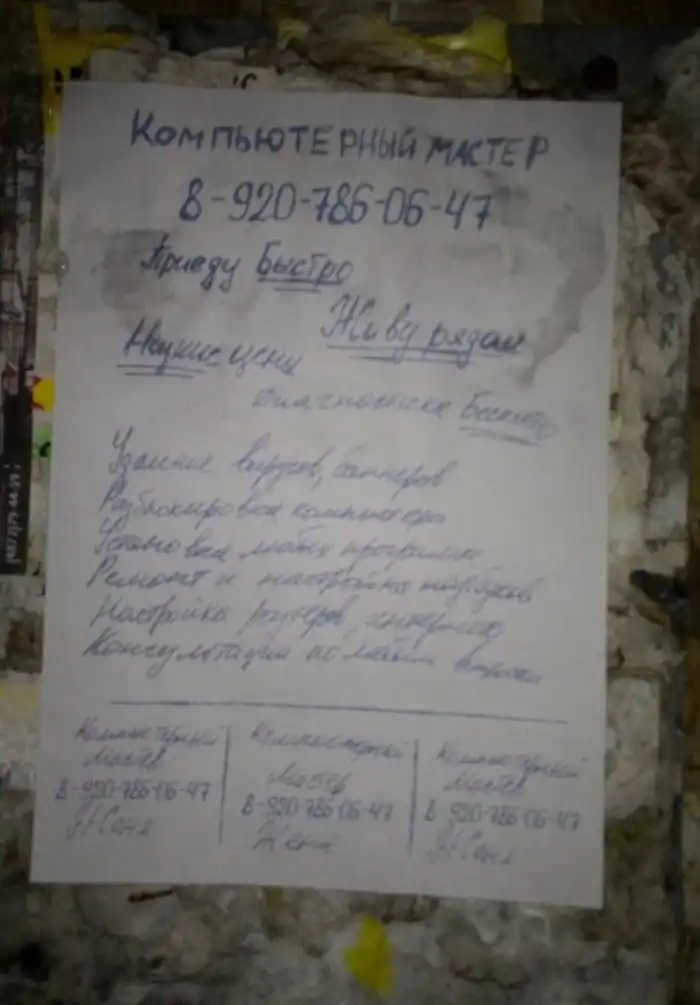 КОМПЬЮТЕРНЫЙ МАСТЕР
8-920-786-06-47
Приеду Быстро
Живу рядом
Низкие цены
Диагностика Бесплатно
Удаление вирусов, баннеров
Разблокировка компьютера
Установка любых программ
Ремонт и настройка ноутбуков
Настройка роутеров, интернета
Консультации по любым вопросам
Компьютерный
Мастер
8-920-786-06-47
Женя
Компьютерный
Мастер
8-920-786-06-47
Женя
Компьютерный
Мастер
8-920-786-06-47
Женя